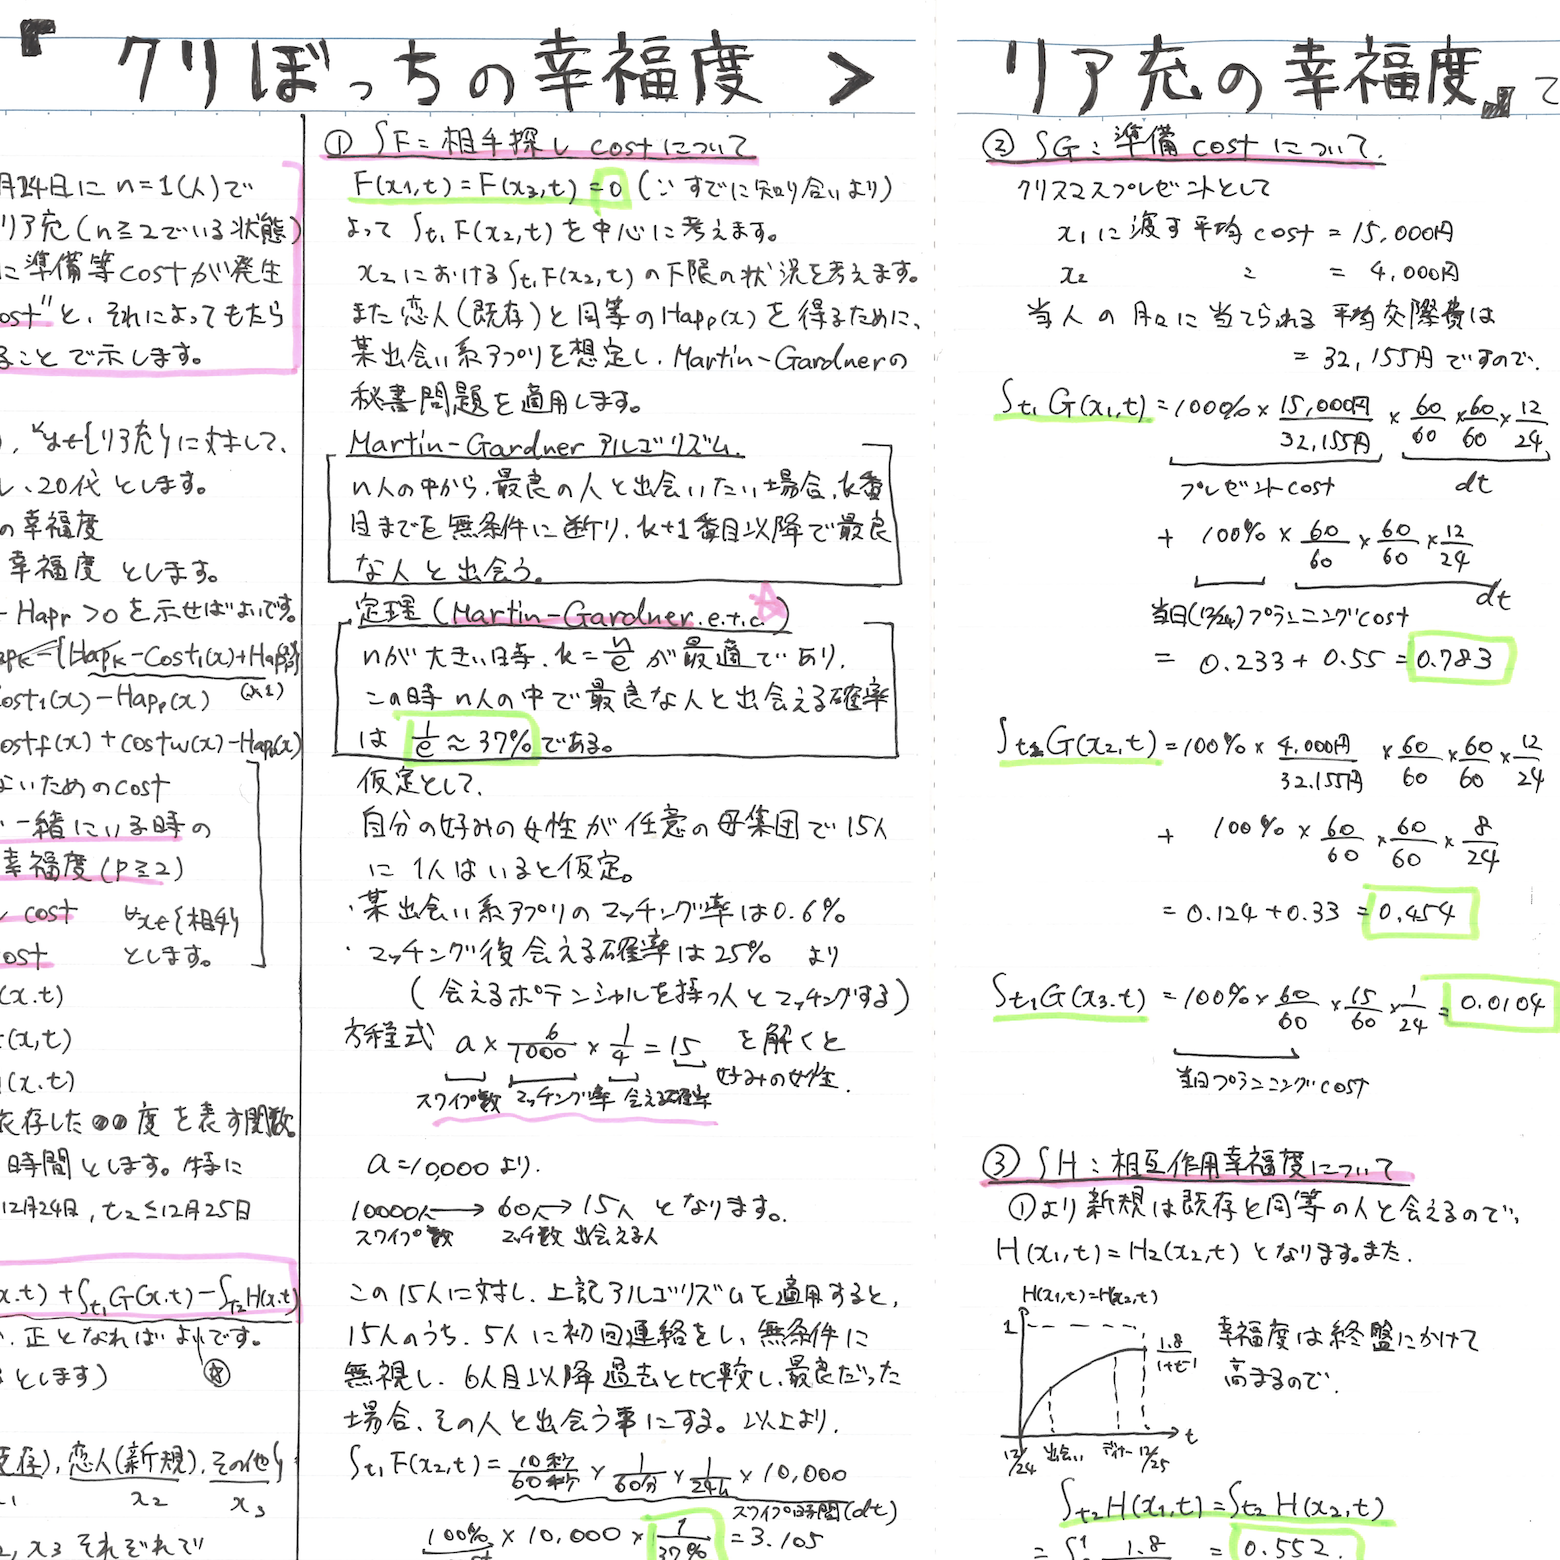 『クリぼっちの幸福度 > リア充の幸福度』て
月24日に n=1(人)で
リア充(n≧2でいる状態)
に準備等costが発生
ost"と、それによってもたら
ることで示します。
), ∀y∈{リア充}に対して、
し、20代とします。
の幸福度
幸福度とします。
- Happ >0を示せばよいです。
- (HapK - Cost1(x)+Happ(x))
(x1)
ost1(x)-Happ(x)
ostf(x)+costw(x)-Happ(x)
ないためのcost
一緒にいる時の
幸福度(P≧2)
cost ∀x∈{相手}
ost とします。
(x.t)
(x,t)
(x.t)
依存した●●度を表す関数。
時間とします。特に
12月24日, t2≦12月25日
x.t) + ∫t1G(x.t) - ∫t2H(x.t)
正となればよいです。
とします)
既存), 恋人(新規), その他}
x1 x2 x3
x3それぞれで
① ∫F:相手探しcostについて
F(x1,t)=F(x3,t)=0 (∵すでに知り合いより)
よって ∫t1F(x2,t)を中心に考えます。
x2における∫t1F(x2,t)の下限の状況を考えます。
また恋人(既存)と同等のHapp(x)を得るために、
某出会い系アプリを想定し、Martin-Gardnerの
秘書問題を適用します。
Martin-Gardner アルゴリズム.
n人の中から、最良の人と出会いたい場合、k番
目までを無条件に断り、k+1番目以降で最良
な人と出会う。
定理(Martin-Gardner.e.t.c.)
nが大きい時、k=n/eが最適であり、
この時n人の中で最良な人と出会える確率
は 1/e≈37%である。
仮定として、
自分の好みの女性が任意の母集団で15人
に1人はいると仮定。
・某出会い系アプリのマッチング率は0.6%
・マッチング後会える確率は25% より
(会えるポテンシャルを持つ人とマッチングする)
方程式 a × 6/1000 × 1/4 = 15 を解くと
スワイプ数 マッチング率 会える確率 好みの女性.
a=10,000より.
10000人→60人→15人となります。
スワイプ数 マッチ数 出会える人
この15人に対し、上記アルゴリズムを適用すると、
15人のうち、5人に初回連絡をし、無条件に
無視し、6人目以降過去と比較し、最良だった
場合、その人と出会う事にする。以上より、
∫t1F(x2,t)= 10秒/60秒 × 1/60分 × 1/24h × 10,000
スワイプ時間(dt)
100% × 10,000 × 1/37% = 3.105
② ∫G:準備costについて.
クリスマスプレゼントとして
x1に渡す平均cost = 15,000円
x2 〃 = 4,000円
当人の月々に当てられる平均交際費は
= 32,155円ですので、
∫t1G(x1,t)=100%× 15,000円/32,155円 × 60/60 × 60/60 × 12/24
プレゼントcost dt
+ 100% × 60/60 × 60/60 × 12/24
dt
当日(12/24)プランニングcost
= 0.233 + 0.55 = 0.783
∫t1G(x2,t)=100%× 4,000円/32,155円 × 60/60 × 60/60 × 12/24
+ 100% × 60/60 × 60/60 × 8/24
= 0.124+0.33 = 0.454
∫t1G(x3.t) = 100% × 60/60 × 15/60 × 1/24 = 0.0104
当日プランニングcost
③ ∫H:相互作用幸福度について
①より新規は既存と同等の人と会えるので、
H(x1,t)=H2(x2,t)となります。また.
H(x1,t)=H(x2,t)
1
1.8/1+e-1
幸福度は終盤にかけて
高まるので、
t
12/24 出会い ディナー 12/25
∫t2H(x1,t)=∫t2H(x2,t)
= ∫ 1.8 = 0.552.